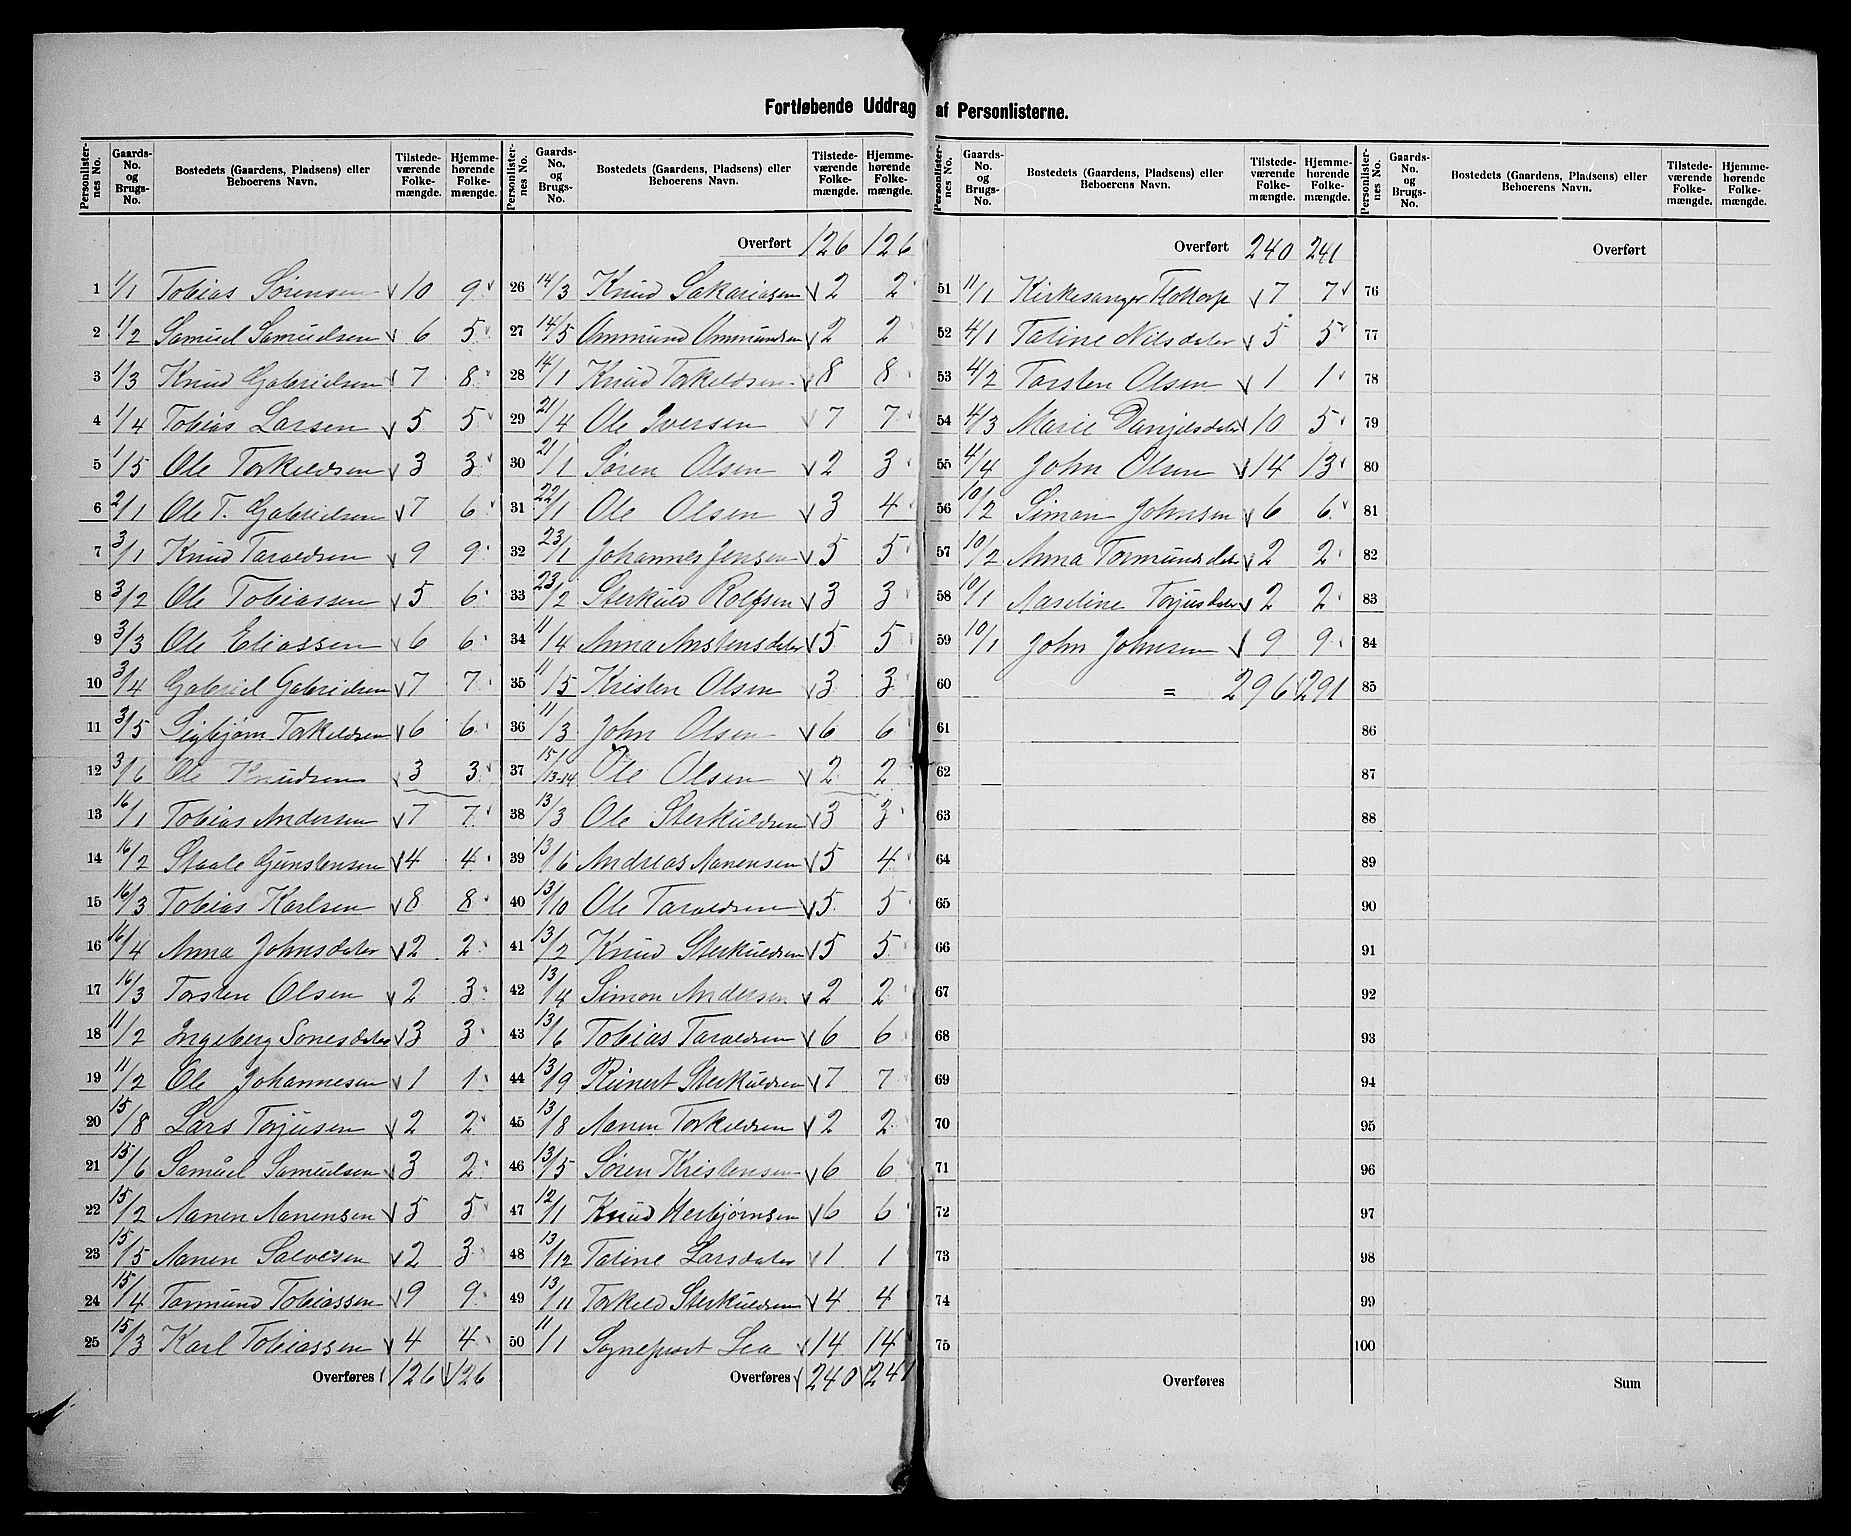 Fortløbende Uddrag af Personlisterne.
Personlister-nes No. | Gaards-No. og Brugs-No. | Bostedets (Gaardens, Pladsens) eller Beboerens Navn. | Tilstede-værende Folke-mængde. | Hjemme-hørende Folke-mængde.
1 1/1 Tobias Sørensen 10 9
2 1/2 Samuel Samuelsen 6 5
3 1/3 Knud Gabrielsen 7 8
4 1/4 Tobias Larsen 5 5
5 1/5 Ole Torkildsen 3 3
6 2/1 Ole T. Gabrielsen 7 6
7 3/1 Knud Taraldsen 9 9
8 3/2 Ole Tobiassen 5 6
9 3/3 Ole Eliassen 6 6
10 3/4 Gabriel Gabrielsen 7 7
11 3/5 Sigbjørn Torkildsen 6 6
12 3/6 Ole Knudsen 3 3
13 16/1 Tobias Andersen 7 7
14 16/2 Staale Gunstensen 4 4
15 16/3 Tobias Karlsen 8 8
16 16/4 Anna Johnsdater 2 2
17 16/3 Torsten Olsen 2 3
18 11/2 Ingeberg Sonesdater 3 3
19 11/2 Ole Johannesen 1 1
20 15/8 Lars Torjusen 2 2
21 15/6 Samuel Samuelsen 3 2
22 15/2 Aanen Aanensen 5 5
23 15/5 Aanen Salvesen 2 3
24 15/4 Tormund Tobiassen 9 9
25 15/3 Karl Tobiassen 4 4
Overføres 126 126
Personlister-nes No. | Gaards-No. og Brugs-No. | Bostedets (Gaardens, Pladsens) eller Beboerens Navn. | Tilstede-værende Folke-mængde. | Hjemme-hørende Folke-mængde.
Overført 126 126
26 14/3 Knud Sakariasen 2 2
27 14/5 Ommund Ommundsen 2 2
28 14/1 Knud Torkildsen 8 8
29 21/4 Ole Iversen 7 7
30 21/1 Søren Olsen 2 3
31 22/1 Ole Olsen 3 4
32 23/1 Johannes Jensen 5 5
33 23/2 Sterkuld Rolfsen 3 3
34 11/4 Anna Anstensdater 5 5
35 11/5 Kristen Olsen 3 3
36 11/3 John Olsen 6 6
37 15/1 /13-14 Ole Olsen 2 2
38 13/3 Ole Sterkuldsen 3 3
39 13/6 Andreas Aanensen 5 4
40 13/10 Ole Taraldsen 5 5
41 13/2 Knud Sterkuldsen 5 5
42 13/4 Simon Andersen 2 2
43 13/6 Tobias Taraldsen 6 6
44 13/9 Reinert Sterkuldsen 7 7
45 13/8 Aanen Torkildsen 2 2
46 13/5 Søren Kristensen 6 6
47 12/1 Knud Herbjørnsen 6 6
48 13/12 Taline Larsdater 1 1
49 13/11 Torkild Sterkuldsen 4 4
50 11/1 Sognepræst Lea 14 14
Overføres 240 241
Personlister-nes No. | Gaards-No. og Brugs-No. | Bostedets (Gaardens, Pladsens) eller Beboerens Navn. | Tilstede-værende Folke-mængde. | Hjemme-hørende Folke-mængde.
Overført 240 241
51 11/1 Kirkesanger Flottorp 7 7
52 4/1 Taline Nilsdater 5 5
53 4/2 Torsten Olsen 1 1
54 4/3 Marie Danjelsdater 10 5
55 4/4 John Olsen 14 13
56 10/2 Simon Johnsen 6 6
57 10/2 Anna Tormundsdater 2 2
58 10/1 Aaseline Torjusdater 2 2
59 10/1 John Johnsen 9 9
60 = 296 291
61
62
63
64
65
66
67
68
69
70
71
72
73
74
75
Overføres
Personlister-nes No. | Gaards-No. og Brugs-No. | Bostedets (Gaardens, Pladsens) eller Beboerens Navn. | Tilstede-værende Folke-mængde. | Hjemme-hørende Folke-mængde.
Overført
76
77
78
79
80
81
82
83
84
85
86
87
88
89
90
91
92
93
94
95
96
97
98
99
100
Sum